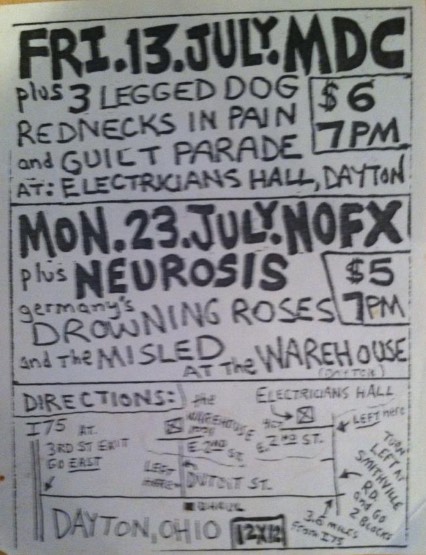 FRI.13.JULY.MDC
plus 3 LEGGED DOG
REDNECKS IN PAIN
and GUILT PARADE
$6
7PM
AT: ELECTRICIANS HALL, DAYTON
MON.23.JULY.NOFX
plus NEUROSIS
$5
7PM
germany's
DROWNING ROSES
and The MISLED
AT The WAREHOUSE
(DAYTON)
DIRECTIONS:
the
WAREHOUSE
ELECTRICIANS HALL
I75 AT
3RD ST EXIT
GO EAST
E. 2ND ST.
E. 2ND ST.
LEFT HERE
LEFT
HERE
DUTOIT ST.
TURN
LEFT AT
SMITHVILLE
RD.
and GO
2 BLOCKS
3.6 MILES
From I75
DAYTON, OHIO
12X12